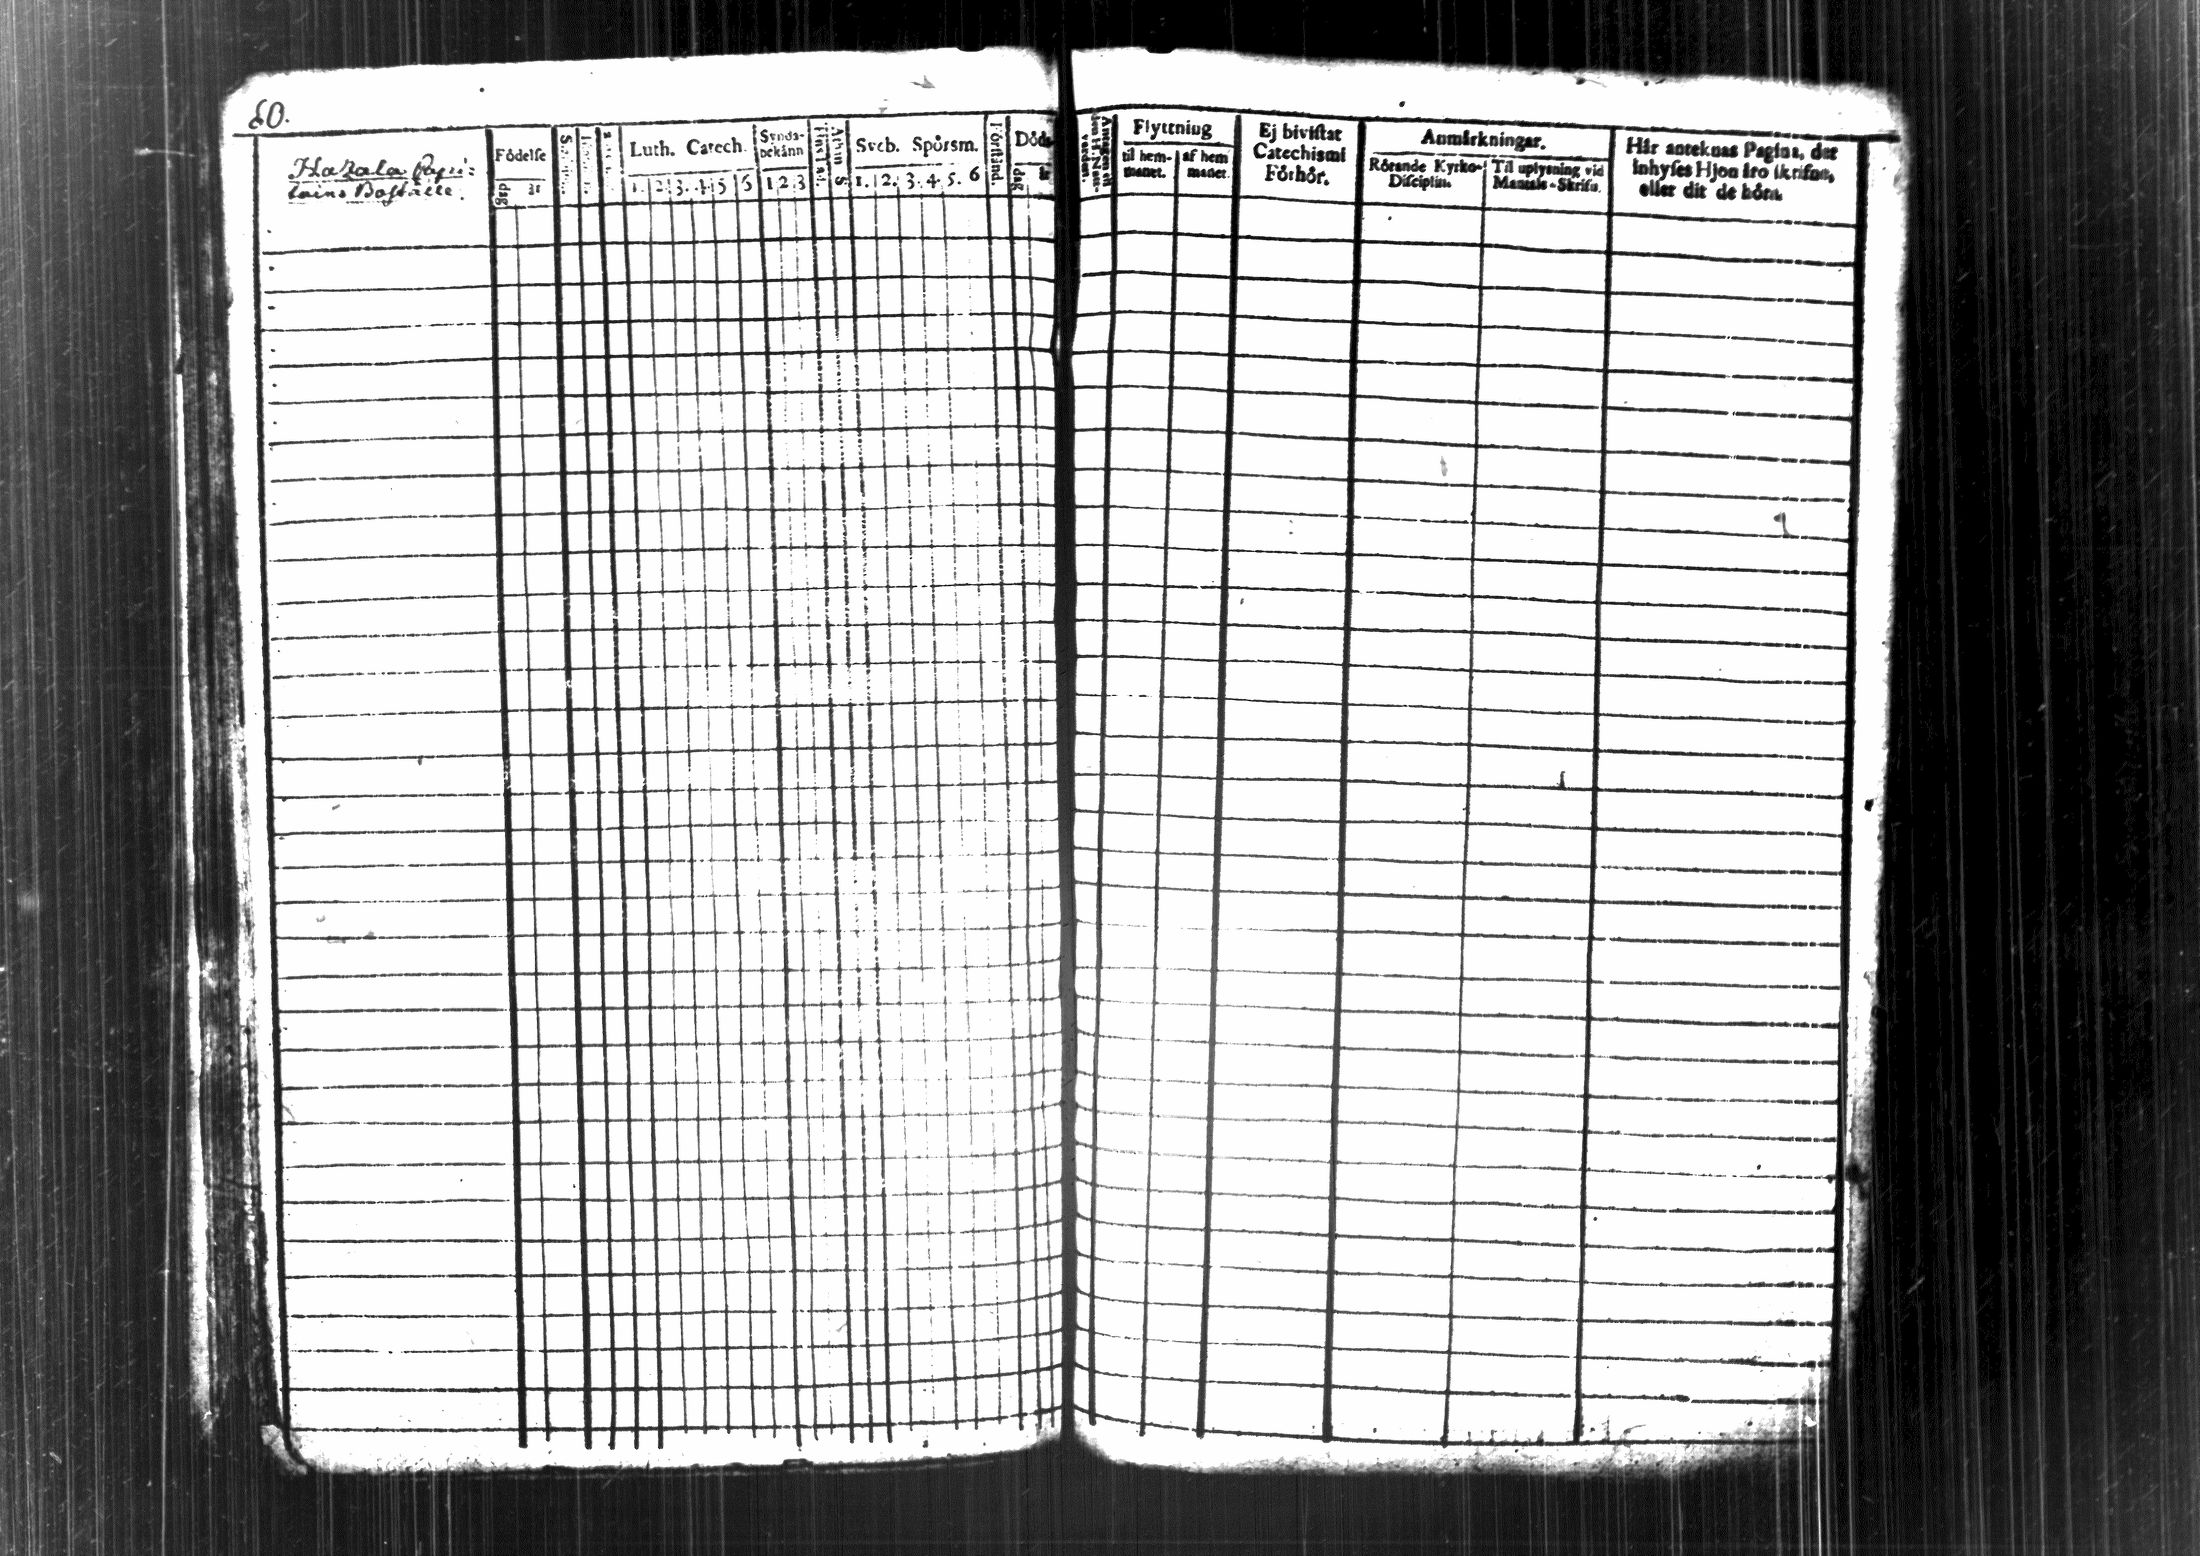 60.
Hatala Capi:
tains Boställe.
Födelse
dag
år
Luth. Catech.
1. 2. 3. 4. 5 6
Synda-
bekänn
1 2 3
Sveb. Spörsm.
1. 2. 3. 4. 5. 6
Förstånd.
Döds
dag
år
Flyttning
til hem-
manet.
af hem
manet.
Ej bivistat
Catechismi
Förhör.
Anmärkningar.
Rörande Kyrko-
Disciplin.
Til uplysning vid
Mantals-Skrifn.
Här anteknas Pagina, der
inhyses Hjon äro skrifne,
eller dit de höra.